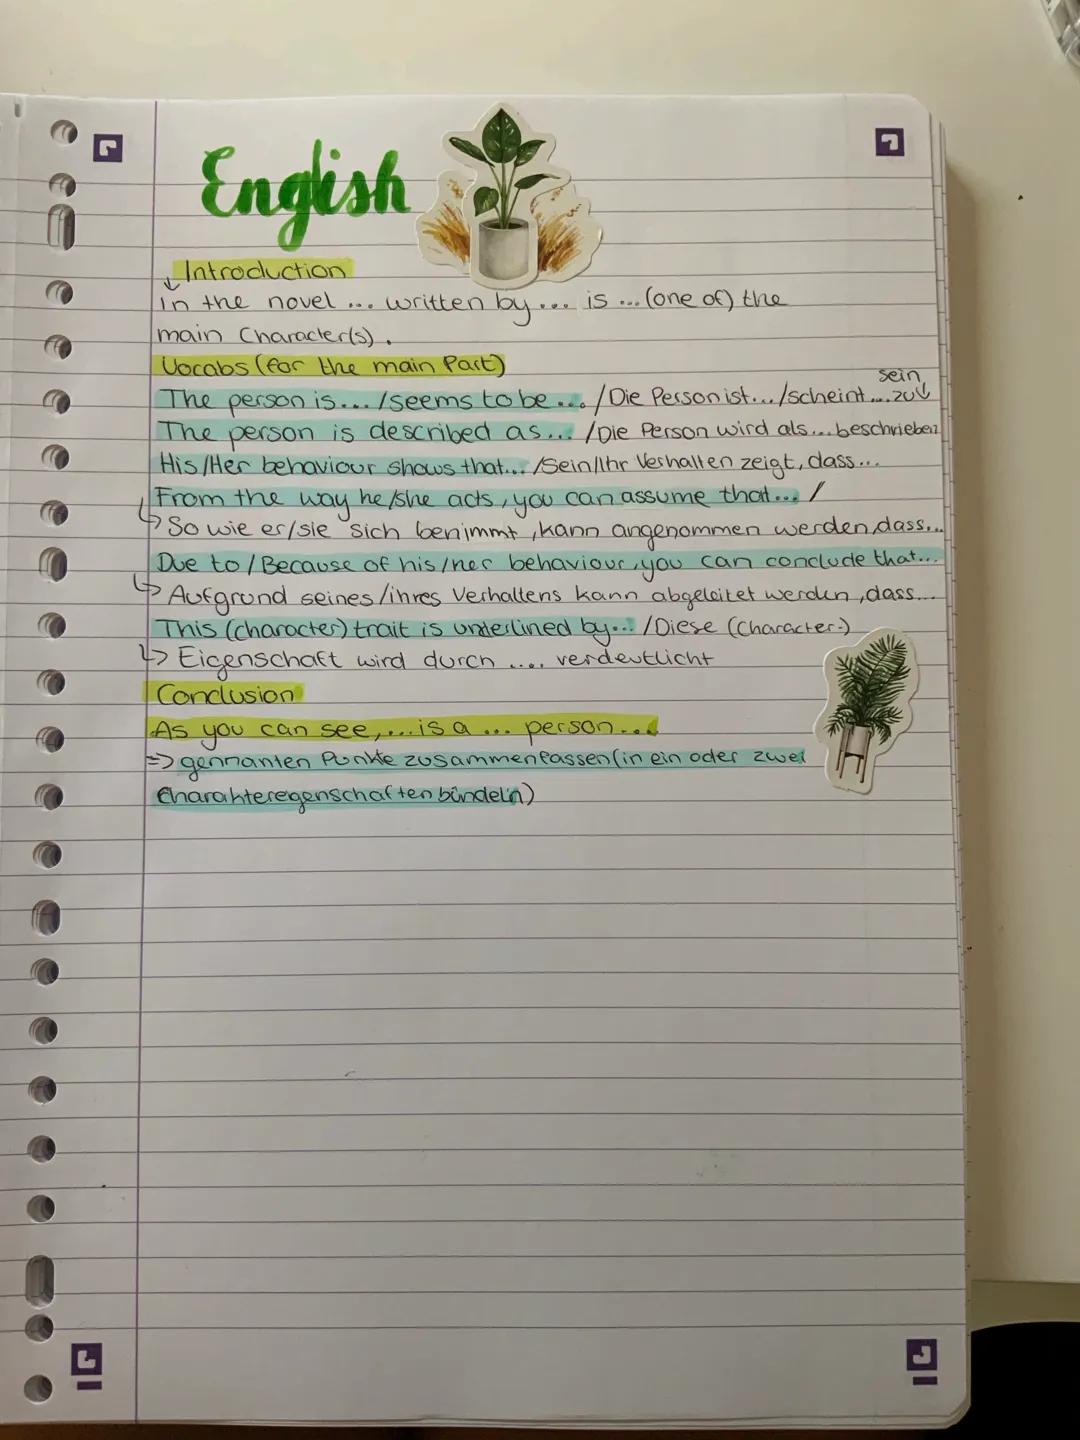 English
Introduction
↓ In the novel ... written by ... is ... (one of) the
main Character(s).
Vocabs (for the main Part)
The person is... /seems to be ... /Die Person ist.../scheint ... zu sein
The person is described as... /Die Person wird als... beschrieben
His/Her behaviour shows that... /Sein/Ihr Verhalten zeigt, dass...
From the way he/she acts, you can assume that... /
↳ So wie er/sie sich benimmt, kann angenommen werden, dass...
Due to / Because of his/her behaviour, you can conclude that...
↳ Aufgrund seines/ihres Verhaltens kann abgeleitet werden, dass...
This (character) trait is underlined by... /Diese (Character-)
↳ Eigenschaft wird durch .... verdeutlicht
Conclusion
As you can see, ... is a ... person...
=> gennanten Punkte zusammenfassen (in ein oder zwei
Charaktereigenschaften bündeln)